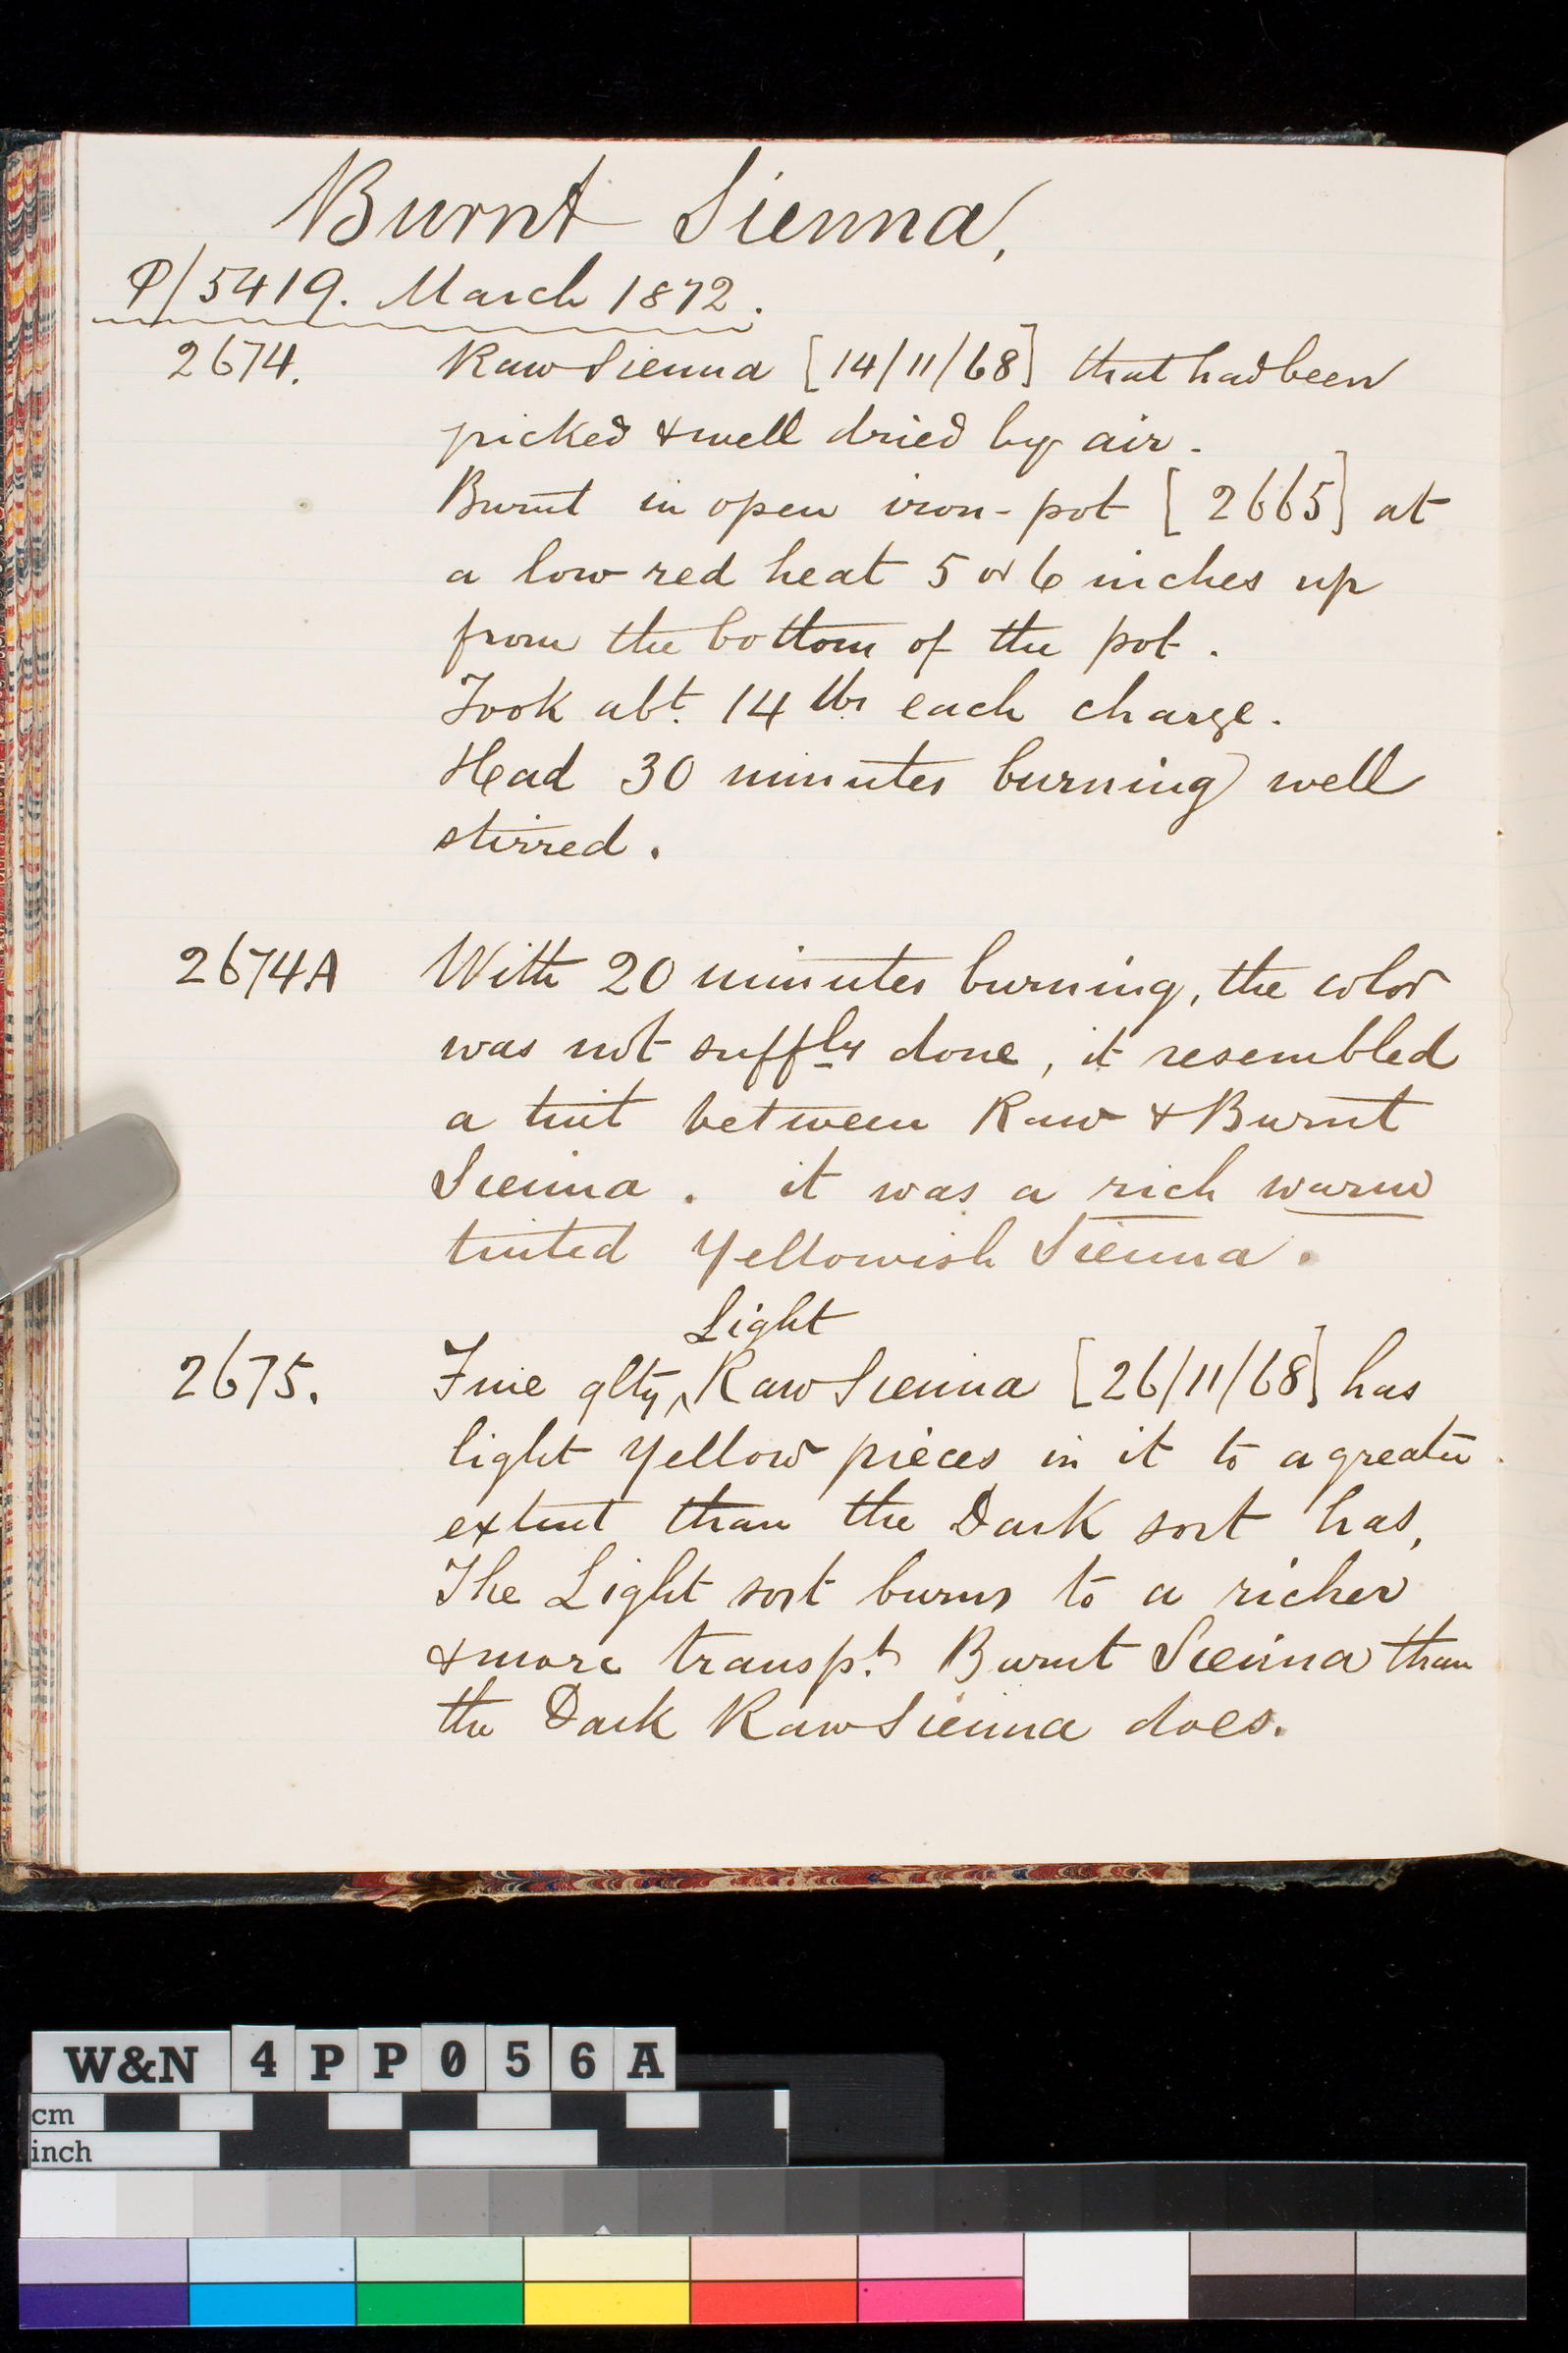 Burnt Sienna,
P/5419. March 1872.
2674. Raw Sienna [14/11/68] that had been
picked & well dried by air.
Burnt in open iron-pot [2665] at
a low red heat 5 or 6 inches up
from the bottom of the pot.
Took abt. 14 lbs each charge.
Head 30 minutes burning well
stirred.
2674A With 20 minutes burning, the color
was not suffly done, it resembled
a tint between Raw & Burnt
Sienna. it was a rich warm
tinted Yellowish Sienna.
Light
2675. Fine qlty, ^ Raw Sienna [26/11/68] has
light Yellow pieces in it to a greater
extent than the Dark sort has,
The Light sort burns to a richer
& more transpt. Burnt Sienna than
the Dark Raw Sienna does.
W&N 4PP056A
cm
inch